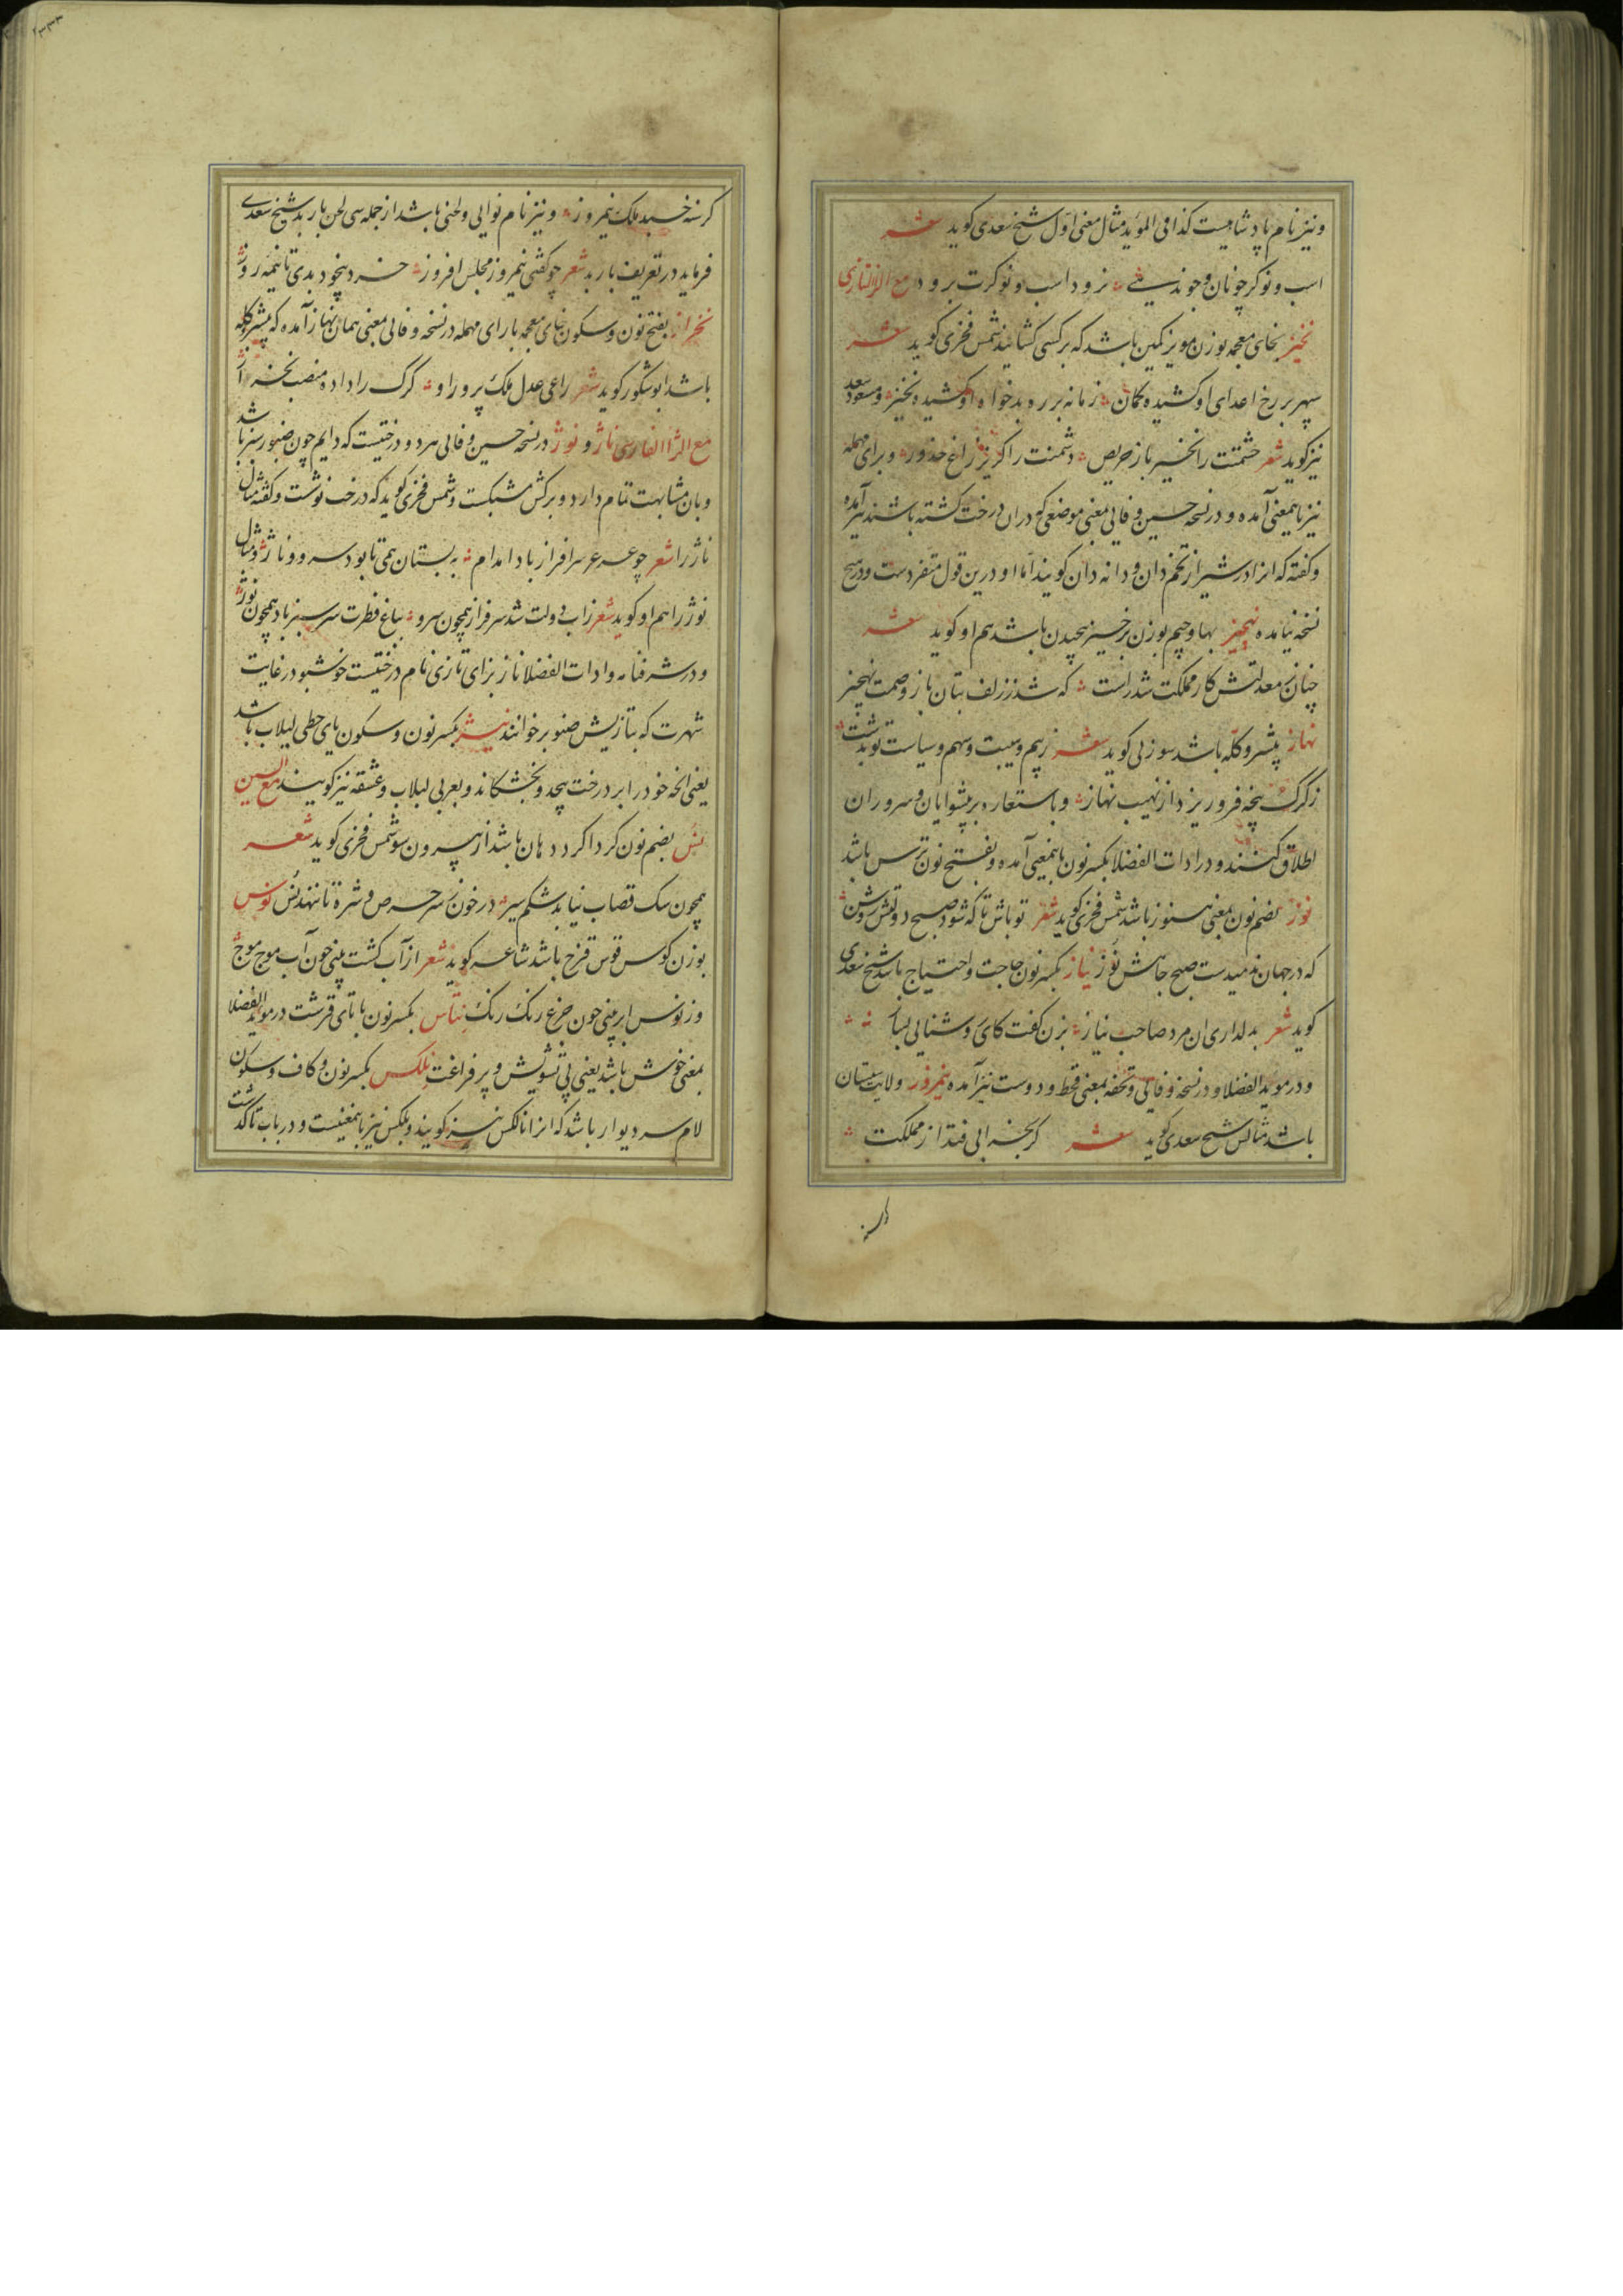 ونیز نام پادشاهیست کذا فی المؤید مثال معنی اول شیخ سعدی کوید شعر
اسب و نوکر چو نان و جو ندیدی نرود اسب و نوکرت برود مع الزا التازی
نخیز بخای معجمه بوزن مویز کمین باشد که بر کسی کشایند شمس فخری کوید شعر
سپهر بر رخ اعدای او کشیده کمان زمانه بر ره بدخواه او کشیده نخیز ومسعود سعد
نیز کوید شعر خشمتت را نخیز باز حریص دشمنت را کریز زاغ حذور و برای مهمله
نیز باینمعنی آمده و در نسخه حسین وفایی بمعنی موضعی که دران درخت کشته باشند نیز آمده
وکفته که انرا در شیراز تخم دان و دانه دان کویند اما او درین قول متفردست و در هیچ
نسخه نیامده نهجیز بها و جیم بوزن برخیز پیچیدن باشد هم او کوید شعر
چنان ز معدلتش کار مملکت شد راست که شد ز زلف بتان باز وصمت نهجیز
نهاز پیشرو کله باشد سوزنی کوید شعر ز بیم وهیبت و سهم و سیاست تو بدشت
ز کرک پنجه فرو ریزد از نهیب نهاز و باستعاره بر پیشوایان و سروران
اطلاق کنند و در ادات الفضلا بکسر نون باینمعنی آمده و بفتح نون ترس باشد
نوز بضم نون بمعنی هنوز باشد شمس فخری کوید شعر تو باش تا که شود صبح دولتش روشن
که در جهان ندمیدست صبح جاهش نوز نیاز بکسر نون حاجت و احتیاج باشد شیخ سعدی
کوید شعر بدلداری ان مرد صاحب نیاز بزن کفت کای روشنایی بساز
و در موید الفضلا و در نسخه وفایی و تحفه بمعنی قحط و دوست نیز آمده نیمروز ولایت سیستان
باشد مثالش شیخ سعدی کوید شعر کر بخرابی فتد از مملکت
کرسنه
کرسنه خسبد ملک نیمروز و نیز نام نوایی ولحنی باشد از جمله سی لحن باربد شیخ سعدی
فرماید در تعریف باربد شعر چو کفتی نیمروز مجلس افروز خرد بیخود بدی تا نیمه روز
نخراز بفتح نون و سکون خای معجمه با رای مهمله در نسخه وفایی بمعنی همان نهاز آمده که پیشرو کله
باشد ابوشکور کوید شعر راعی عدل ملک پرور او کرک را داده منصب نخراز
مع الزا الفارسی ناژ و نوژ در نسخه حسین وفایی هر دو درختیست که دایم چون صنوبر سبز باشد
وبان مشابهت تمام دارد و برکش مشبکست و شمس فخری کوید که درخت نوشت وکفته مثال
ناژ را شعر چو عرعر سرافراز بادا مدام به بستان همی تا بود سرو و ناژ و مثال
نوژ را هم او کوید شعر ز آب دولت شد سرفراز همچون سرو بباغ فطرت سرسبز باد همچون نوژ
و در شرفنامه و ادات الفضلا ناز بزای تازی نام درختیست خوشبو در غایت
شهرت که بتازیش صنوبر خوانند نیژ بکسر نون و سکون یای حطی لبلاب باشد
یعنی انچه خود را بر درخت پیچد و بخشکاند و بعربی لبلاب و عشقه نیز کویند مع السین
نس بضم نون کرداکرد دهان باشد از بیرون سو شمس فخری کوید شعر
همچون سک قصاب نیابد شکم سیر در خون ز سر حرص و شره تا ننهد نس نوس
بوزن کوس قوس قزح باشد شاعر کوید شعر از آب کشت بینی خون آب موج موج
وز نوس ابر بینی چون جزع رنک رنک نتاس بکسر نون با تای قرشت در موید الفضلا
بمعنی خوش باشد یعنی بی تشویش و پر فراغت نلکس بکسر نون و کاف و سکون
لام سر دیوار باشد که انرا نانکس نیز کویند و بلکس نیز باینمعنیست و در باب تا کذشت